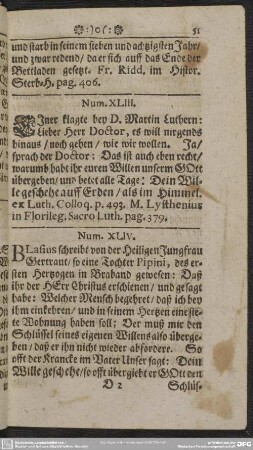 :)o(:
51
und starb in seinem sieben und achtzigsten Jahr/
und zwar redend/ da er sich auf das Ende der
Bettladen gesetzt. Fr. Ridd. im Histor.
Sterb-H. pag. 406.
Num. XLIII.
EJner klagte bey D. Martin Luthern:
Lieber Herr Doctor, es will nirgends
hinaus/ noch gehen/ wie wir wollen. Ja/
sprach der Doctor: Das ist auch eben recht/
warumb habt ihr euren Willen unserm GOtt
übergeben/ und betet alle Tage: Dein Wil-
le geschehe auff Erden/ als in Himmel.
ex Luth. Colloq. p. 493. M. Lysthenius
in Florileg. Sacro Luth. pag. 379.
Num. XLIV.
BLasius schreibt von der Heiligen Jungfrau
Gertraut/ so eine Tochter Pipini, des er-
sten Hertzogen in Braband gewesen: Daß
ihr der HErr Christus erschienen/ und gesagt
habe: Welcher Mensch begehret/ daß ich bey
ihm einkehren/ und in seinem Hertzen eine ste-
te Wohnung haben soll; Der muß mir den
Schlüssel seines eigenen Willens also überge-
ben/ daß er ihn nicht wieder abfordere. So
offt der Krancke im Vater Unser sagt: Dein
Wille geschehe/ so offt übergiebt er GOtt den
D 2
Schlüs-